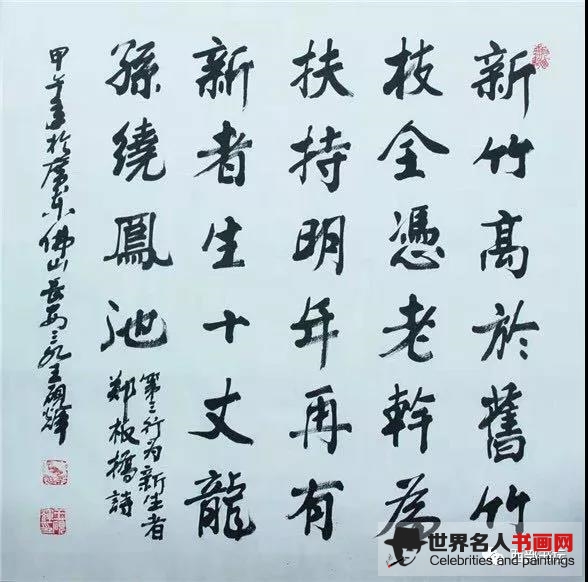 新竹高於舊竹
枝全憑老幹為
扶持明年再有
新者生十丈龍
孫繞鳳池
第三行为新生者
郑板橋詩
甲午年於廣东佛山長安王輝
世界名人书画网
Celebrities and paintings